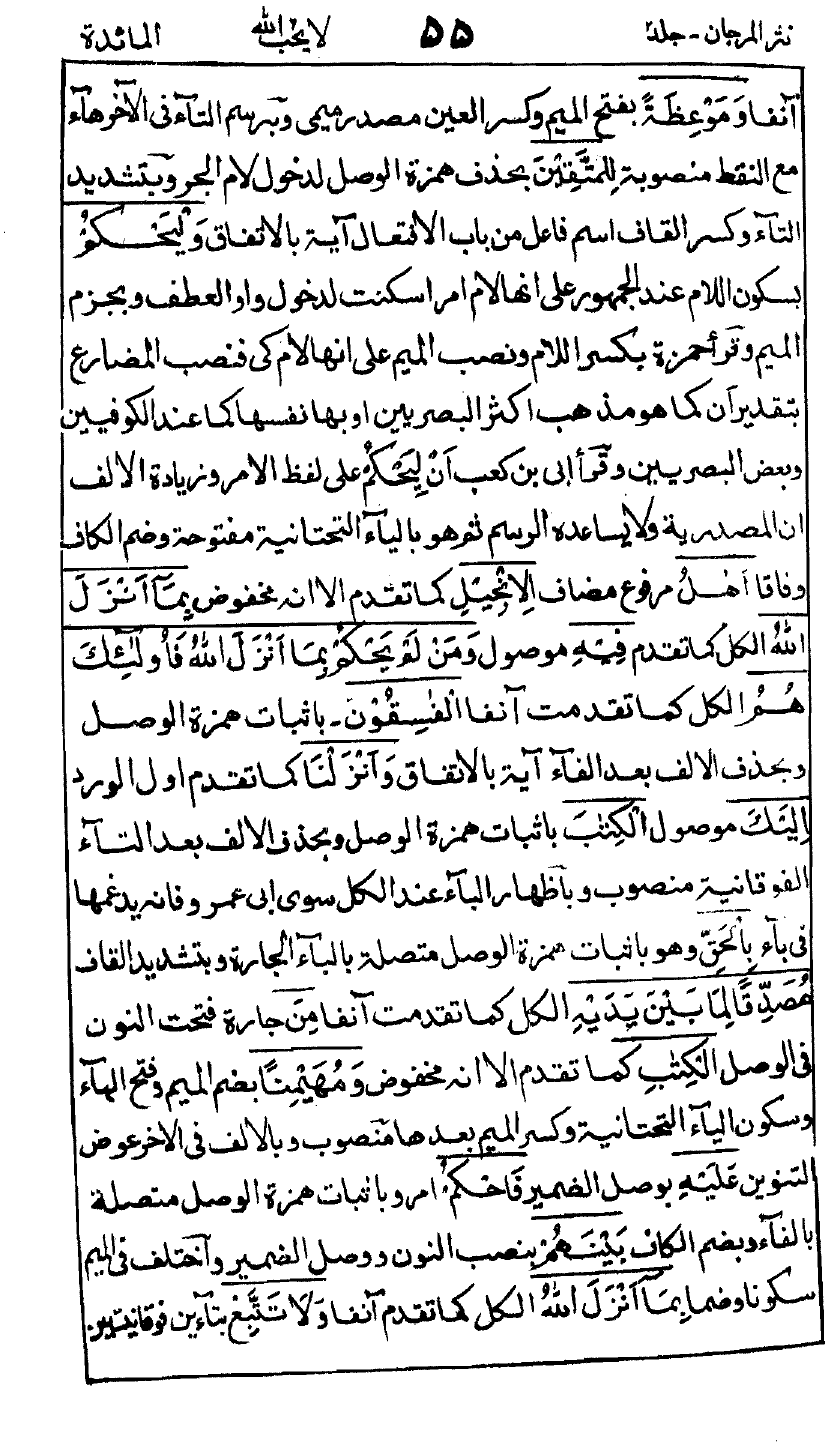 نثر المرجان - جلد ٢ ٥٥ لا يحب الله المائدة
آنفا وَمَوْعِظَةً بفتح الميم وكسر العين مصدر ميمى وبرسم التآء فى الآخر هآء
مع النقط منصوبة لِلْمُتَّقِيْنَ بحذف همزة الوصل لدخول لام الجر وبتشديد
التآء وكسر القاف اسم فاعل من باب الافتعال آية بالاتفاق وَلْيَحْكُمْ
بسكون اللام عند الجمهور على انها لام امر اسكنت لدخول واو العطف وبجزم
الميم وقرأ حمزة بكسر اللام ونصب الميم على انها لام كى فنصب المضارع
بتقدير ان كما هو مذهب اكثر البصريين او بها نفسها كما عند الكوفيين
وبعض البصريين وقرأ ابى بن كعب اَنْ لِيَحْكُمْ على لفظ الامر وزيادة الالف
ان المصدرية ولا يساعده الرسم ثم هو باليآء التحتانية مفتوحة وضم الكاف
وفاقا اَهْلُ مرفوع مضاف الْاِنْجِيْلِ كما تقدم الا انه مخفوض بِمَآ اَنْزَلَ
اللهُ الكل كما تقدم فِيْهِ موصول وَمَنْ لَمْ يَحْكُمْ بِمَا اَنْزَلَ اللهُ فَاُولٰٓئِكَ
هُمُ الكل كما تقدمت آنفا الْفٰسِقُوْنَ - باثبات همزة الوصل
وبحذف الالف بعد الفآء آية بالاتفاق وَاَنْزَلْنَا كما تقدم اول الورد
اِلَيْكَ موصول الْكِتٰبَ باثبات همزة الوصل وبحذف الالف بعد التآء
الفوقانية منصوب وباظهار البآء عند الكل سوى ابى عمرو فانه يدغمها
فى بآء بِالْحَقِّ وهو باثبات همزة الوصل متصلة بالبآء الجارة وبتشديد القاف
مُصَدِّقًا لِمَا بَيْنَ يَدَيْهِ الكل كما تقدمت آنفا مِنَ جارة فتحت النون
فى الوصل الْكِتٰبِ كما تقدم الا انه مخفوض وَمُهَيْمِنًا بضم الميم وفتح الهآء
وسكون اليآء التحتانية وكسر الميم بعدها منصوب وبالالف فى الاخر عوض
التنوين عَلَيْهِ بوصل الضمير فَاحْكُمْ امر وباثبات همزة الوصل متصلة
بالفآء وبضم الكاف بَيْنَهُمْ بنصب النون ووصل الضمير وآختلف فى الميم
سكونا وضما بِمَآ اَنْزَلَ اللهُ الكل كما تقدم آنفا وَلَا تَتَّبِعْ بتآءين فوقانيتين